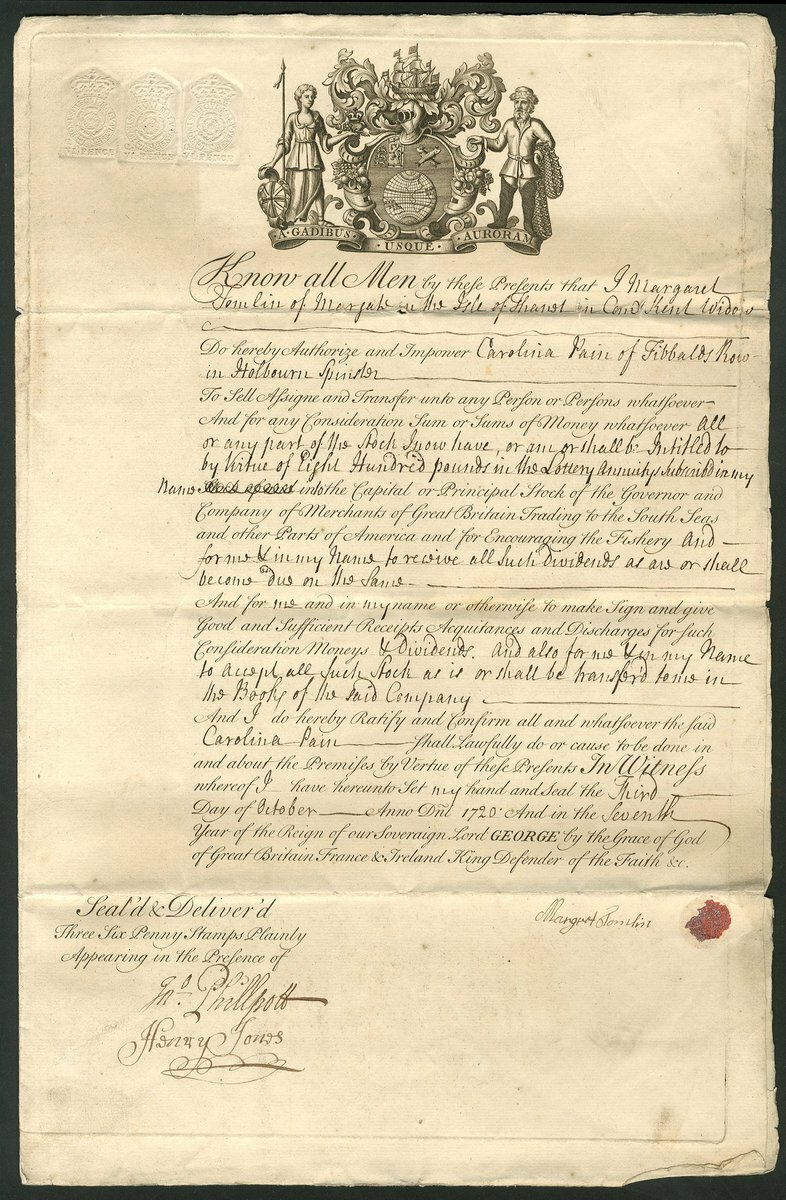 VI PENCE VI PENCE VI PENCE
A GADIBUS USQUE AURORAM
Know all Men by these Presents that I Margaret
Tomlin of Margate in the Isle of Thanet in Com Kent Widow
Do hereby Authorize and Impower Carolina Pain of Tibbalds Row
in Holbourn Spinster
To Sell Assigne and Transfer unto any Person or Persons whatsoever
And for any Consideration Sum or Sums of Money whatsoever all
or any part of the Stock I now have, or am or shall be Intitled to
by Virtue of Eight Hundred pounds in the Lottery annuitys Subscrib'd in my
Name into the Capital or Principal Stock of the Governor and
Company of Merchants of Great Britain Trading to the South Seas
and other Parts of America and for Encouraging the Fishery And
for me & in my Name to receive all such Dividends as are or shall
become due on the Same
And for me and in my name or otherwise to make Sign and give
Good and Sufficient Receipts Acquitances and Discharges for such
Consideration Moneys & Dividends. And also for me & in my Name
to accept all such Stock as is or shall be transfer'd to me in
the Books of the said Company
And I do hereby Ratify and Confirm all and whatsoever the said
Carolina Pain Shall Lawfully do or cause to be done in
and about the Premises by Vertue of these Presents In Witness
whereof I have hereunto Set my hand and Seal the Third
Day of October Anno Dni 1720 And in the Seventh
Year of the Reign of our Soveraign Lord GEORGE by the Grace of God
of Great Britain France & Ireland King Defender of the Faith &c.
Seal'd & Deliver'd
Three Six Penny Stamps Plainly
Appearing in the Presence of
Margret Tomlin
Jno. Phillpott
Henry Jones